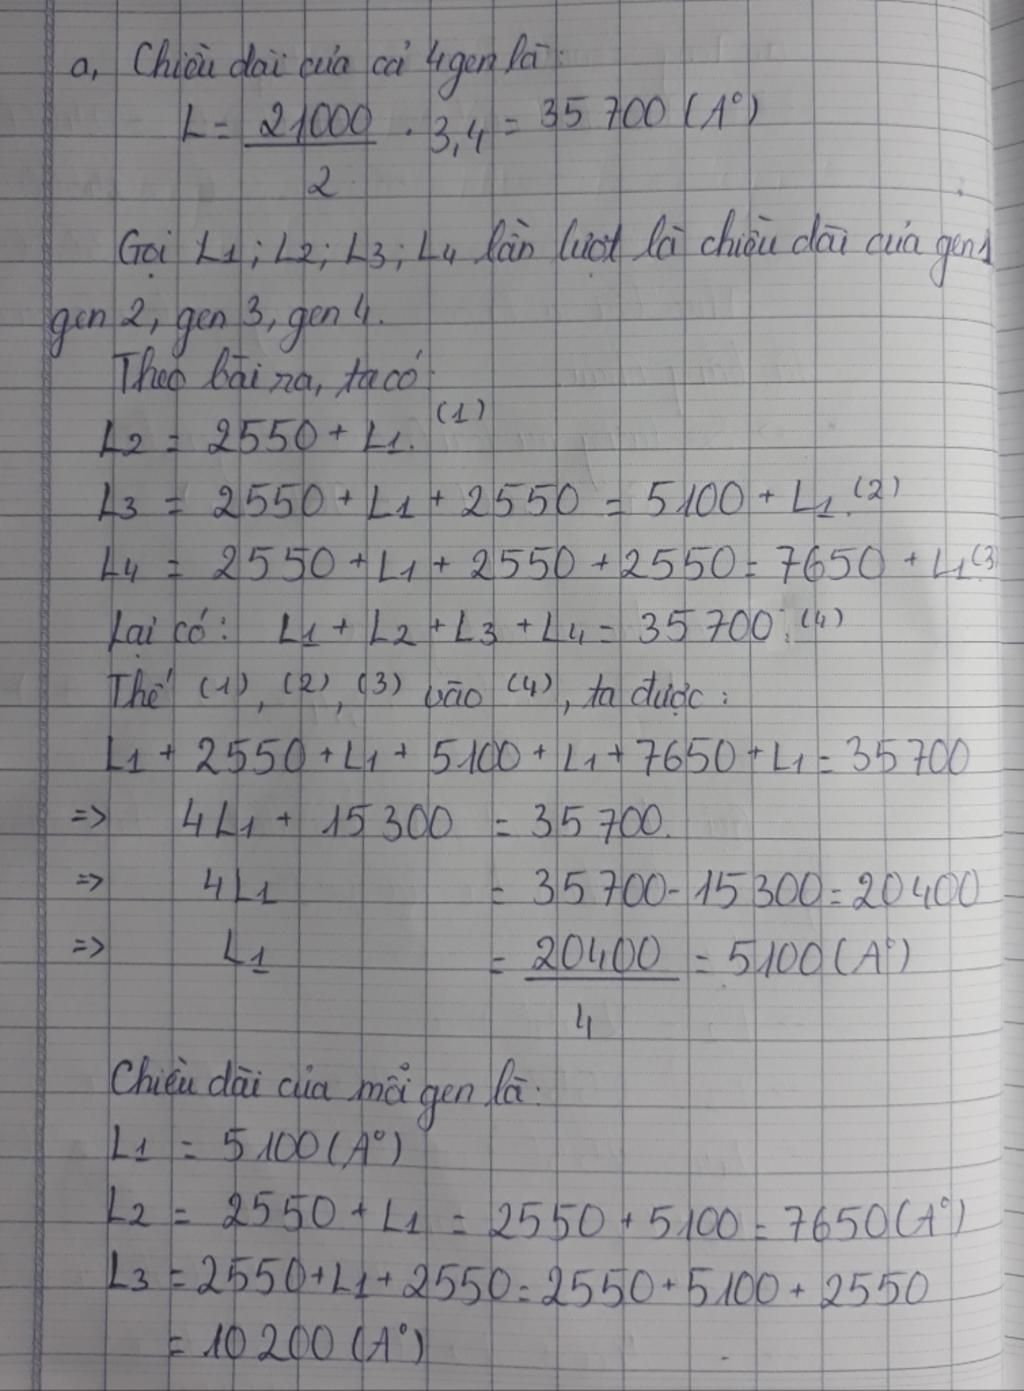 a, Chiều dài của cả 4 gen là:
L = 21000/2 . 3,4 = 35 700 (A°)
Gọi L1; L2; L3; L4 lần lượt là chiều dài của gen 1
gen 2, gen 3, gen 4.
Theo bài ra, ta có:
L2 = 2550 + L1. (1)
L3 = 2550 + L1 + 2550 = 5100 + L1. (2)
L4 = 2550 + L1 + 2550 + 2550 = 7650 + L1 (3
Lại có: L1 + L2 + L3 + L4 = 35 700. (4)
Thế (1), (2), (3) vào (4), ta được:
L1 + 2550 + L1 + 5100 + L1 + 7650 + L1 = 35 700
=> 4L1 + 15 300 = 35 700.
=> 4L1 = 35 700 - 15 300 = 20 400
=> L1 = 20400/4 = 5100 (A°)
Chiều dài của mỗi gen là:
L1 = 5100 (A°)
L2 = 2550 + L1 = 2550 + 5100 = 7650 (A°)
L3 = 2550 + L1 + 2550 = 2550 + 5100 + 2550
= 10 200 (A°)